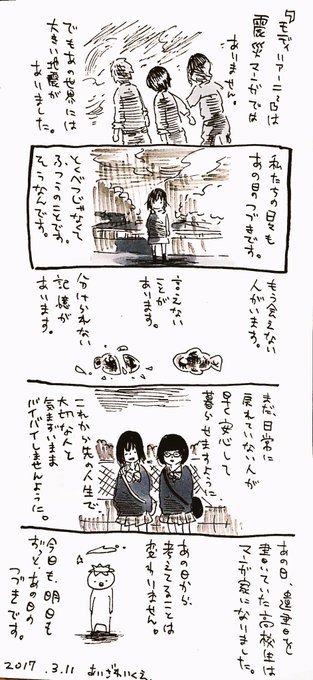 『モディリアーニにお願い』は
震災マンガでは
ありません。
でもあの世界には
大きい地震が
ありました。
私たちの日々も
あの日のつづきです。
とくべつじゃなくて
ふつうのことです。
そうなんです。
もう会えない
人がいます。
言えない
ことが
あります。
分けられない
記憶が
あります。
まだ、日常に
戻れていない人が
早く安心して
暮らせますように。
これから先の人生で
大切な人と
気まずいまま
バイバイしませんように。
あの日、遺書を
書いていた高校生は
マンガ家になりました。
あの日から
考えてることは
変わりません。
今日も、明日も
ずっと、あの日の
つづきです。
2017 3.11 あいざわいくえ